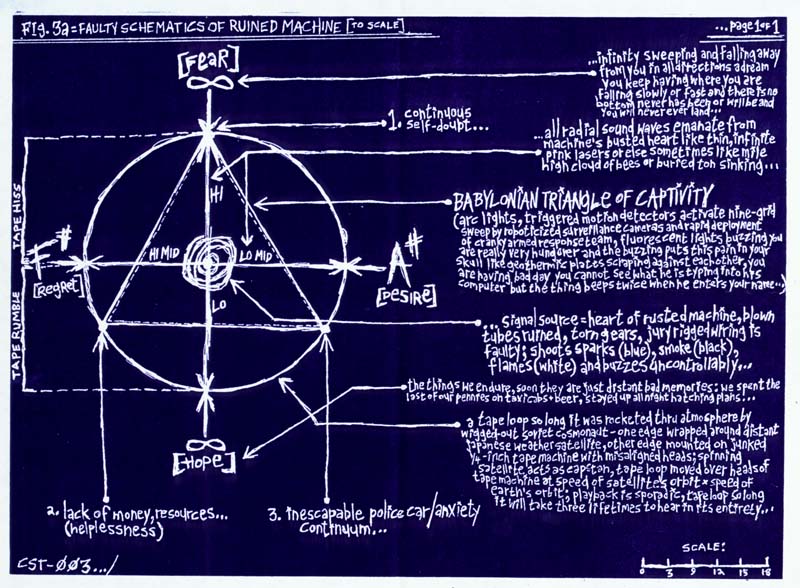 Fig. 3a = FAULTY SCHEMATICS OF RUINED MACHINE [TO SCALE]
...page 1 of 1
[FeaR]
∞
...infinity sweeping and falling away
from you in all directions a dream
you keep having where you are
falling slowly or fast and there is no
bottom never has been or will be and
you will never ever land...
1. continuous
self-doubt...
...all radial sound waves emanate from
machine's busted heart like thin, infinite
pink lasers or else sometimes like mile
high cloud of bees or buried ton sinking...
BABYLONIAN TRIANGLE OF CAPTIVITY
(arc lights, triggered motion detectors activate nine-grid
sweep by roboticized surveillance cameras and rapid deployment
of cranky armed response team, fluorescent lights buzzing you
are really very hungover and the buzzing puts this pain in your
skull like geothermic plates scraping against each other, you
are having bad day you cannot see what he is typing into his
computer but the thing beeps twice when he enters your name...)
TAPE HISS
TAPE RUMBLE
HI
HI MID
LO MID
LO
F#
[RegRet]
A#
[DesiRe]
...signal source = heart of rusted machine, blown
tubes ruined, torn gears, jury rigged wiring is
faulty; shoots sparks (blue), smoke (black),
flames (white) and buzzes uncontrollably...
the things we endure, soon they are just distant bad memories: we spent the
last of our pennies on taxicabs + beer, stayed up all night hatching plans!...
a tape loop so long it was rocketed thru atmosphere by
wigged-out soviet cosmonaut - one edge wrapped around distant
japanese weather satellite, other edge mounted on junked
1/4-inch tape machine with misaligned heads; spinning
satellite acts as capstan, tape loop moved over heads of
tape machine at speed of satellite's orbit × speed of
earth's orbit; playback is sporadic, tape loop so long
it will take three lifetimes to hear in its entirety...
∞
[Hope]
2. lack of money, resources...
(helplessness)
3. inescapable police car/anxiety
continuum...
CST-003.../
SCALE:
0 3 9 12 15 18